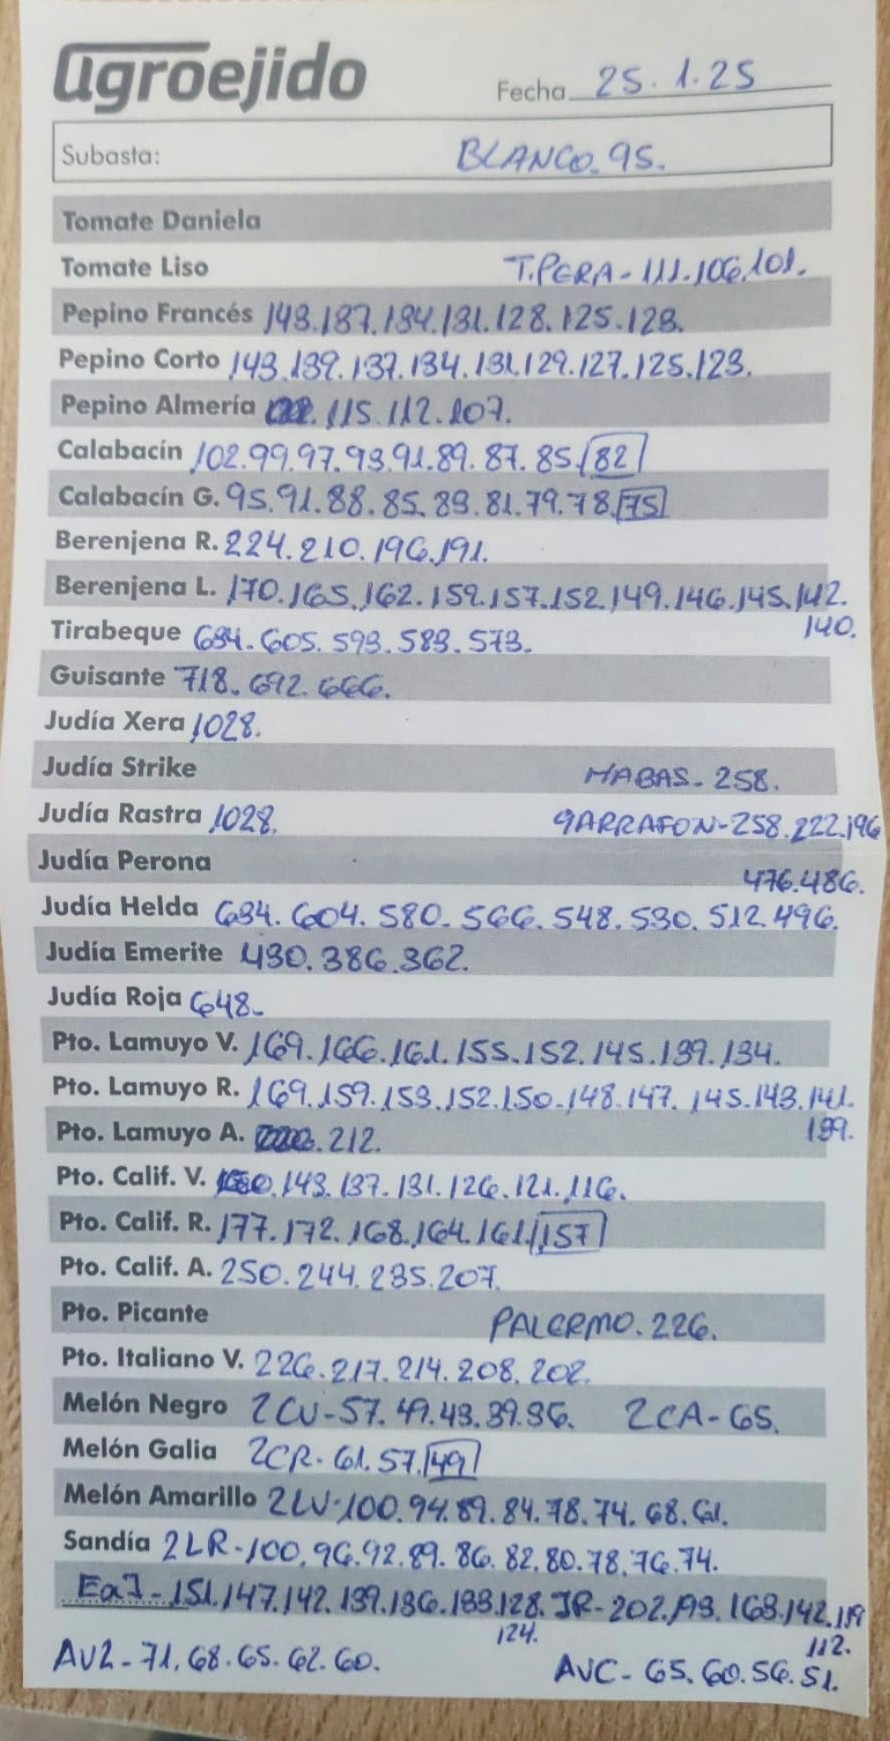 agroejido
Fecha 25.1.25
Subasta: BLANCO. 95.
Tomate Daniela
Tomate Liso T.PERA - 111.106.101.
Pepino Francés 143.137.134.131.128.125.123.
Pepino Corto 143.139.137.134.131.129.127.125.123.
Pepino Almería 115.112.107.
Calabacín 102.99.97.93.91.89.87.85.82
Calabacín G. 95.91.88.85.83.81.79.78.75
Berenjena R. 224.210.196.191.
Berenjena L. 170.165.162.159.157.152.149.146.145.142.
140.
Tirabeque 634.605.593.583.573.
Guisante 718.692.666.
Judía Xera 1028.
Judía Strike HABAS - 258.
Judía Rastra 1028. GARRAFON-258.222.196
Judía Perona
476.486.
Judía Helda 634.604.580.566.548.530.512.496.
Judía Emerite 430.386.362.
Judía Roja 648.
Pto. Lamuyo V. 169.166.161.155.152.145.139.134.
Pto. Lamuyo R. 169.159.153.152.150.148.147.145.143.141.
139.
Pto. Lamuyo A. 212.
Pto. Calif. V. 143.137.131.126.121.116.
Pto. Calif. R. 177.172.168.164.161.157
Pto. Calif. A. 250.244.235.207.
Pto. Picante PALERMO. 226.
Pto. Italiano V. 226.217.214.208.202.
Melón Negro 2CV-57.49.43.39.36. 2CA-65.
Melón Galia 2CR-61.57.49
Melón Amarillo 2LV-100.94.89.84.78.74.68.61.
Sandía 2LR-100.96.92.89.86.82.80.78.76.74.
151.147.142.139.136.133.128. JR-202.193.163.142.119
124.
112.
AV2-71.68.65.62.60.
AVC-65.60.56.51.